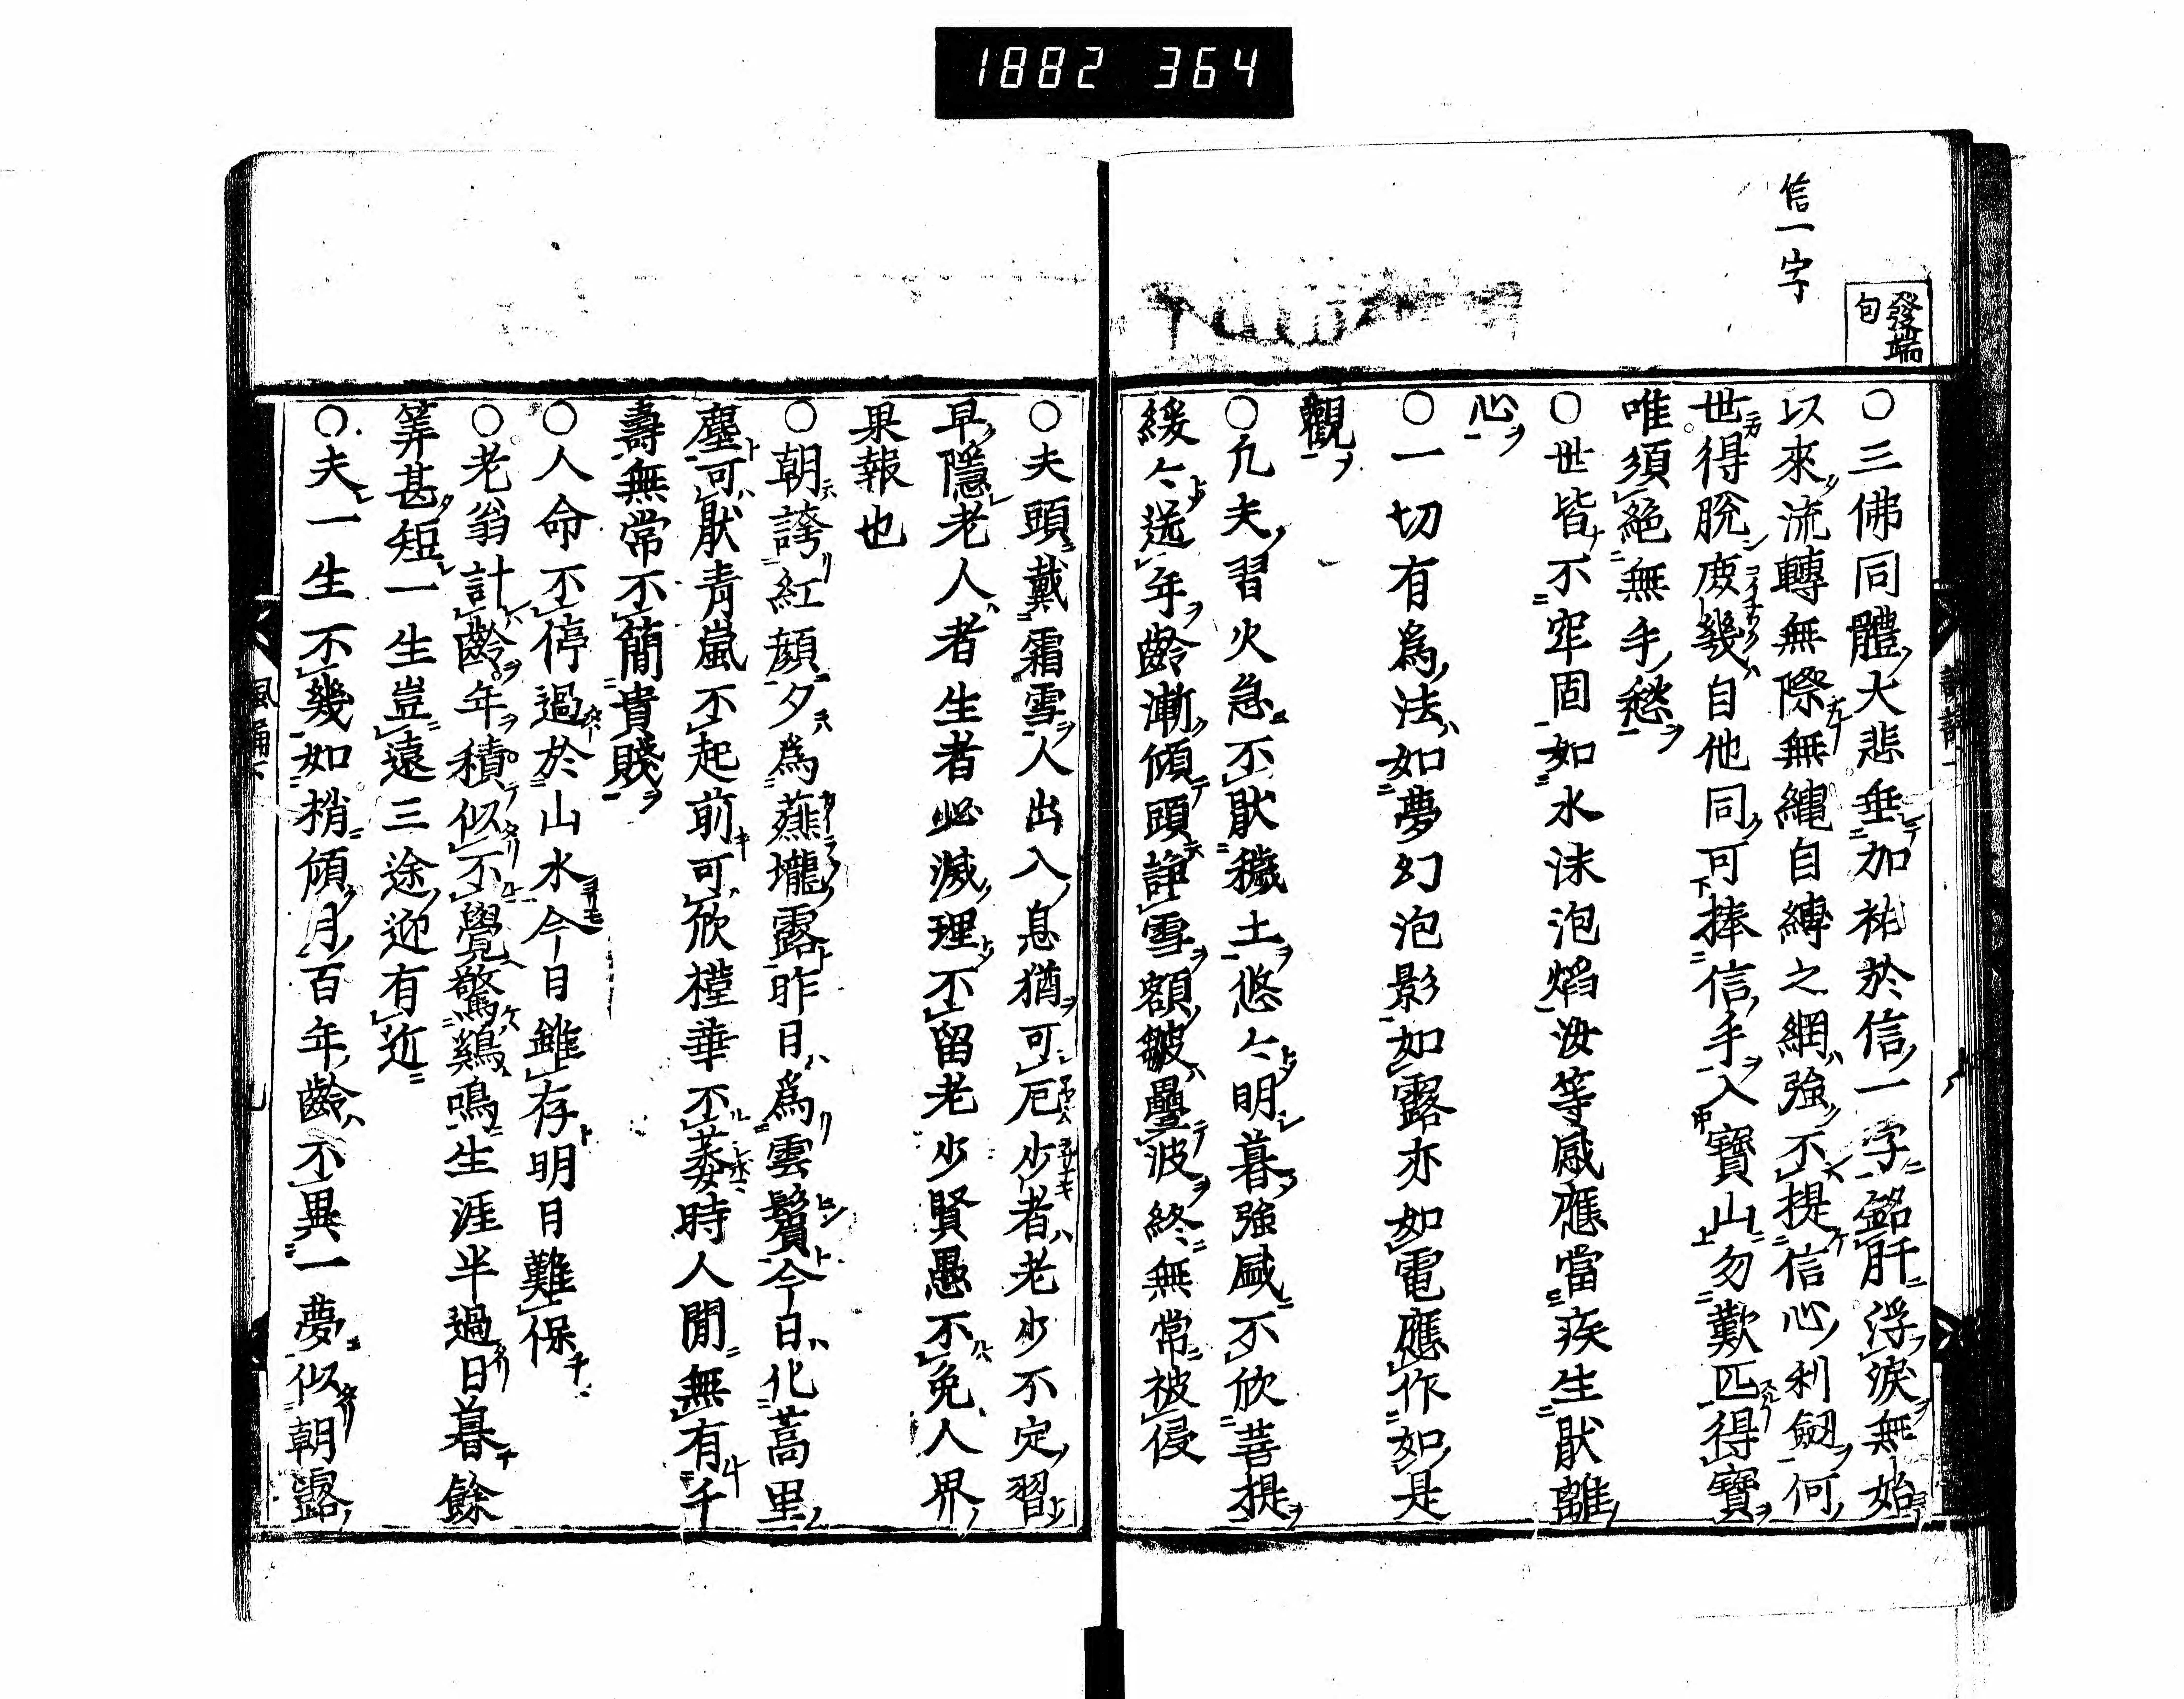 1882 364
信一字
發端
句
○三佛同體大悲垂加祐於信一字銘肝浮淚無始
以來流轉無際無繩自縛之網強不提信心利劔何
世得脫庻幾自他同可捧信手入寶山勿歎匹得寶
唯須絕無手愁
○世皆不窂固如水沫泡焰汝等咸應當疾生猒離
心
○一切有爲法如夢幻泡影如露亦如電應作如是
觀
○凢夫習火急不猒穢土悠〻明暮強咸不欣菩提
緩〻送年齡漸傾頭諍雪額皺疊波終無常被侵
○夫頭戴霜雪人出入息猶可厄少者老少不定習
早隱老人者生者必滅理不留老少賢愚不免人界
果報也
○朝誇紅顔夕爲蕪壠露昨日爲雲鬢今日化蒿里
塵可猒青嵐不起前可欣槿華不萎時人間無有千
壽無常不簡貴賤
○人命不停過於山水今日雖存明日難保
○老翁計齡年積似不覺驚鷄鳴生涯半過日暮餘
筭甚短一生豈遠三途迎有近
○夫一生不幾如梢傾月百年齡不異一夢似朝露